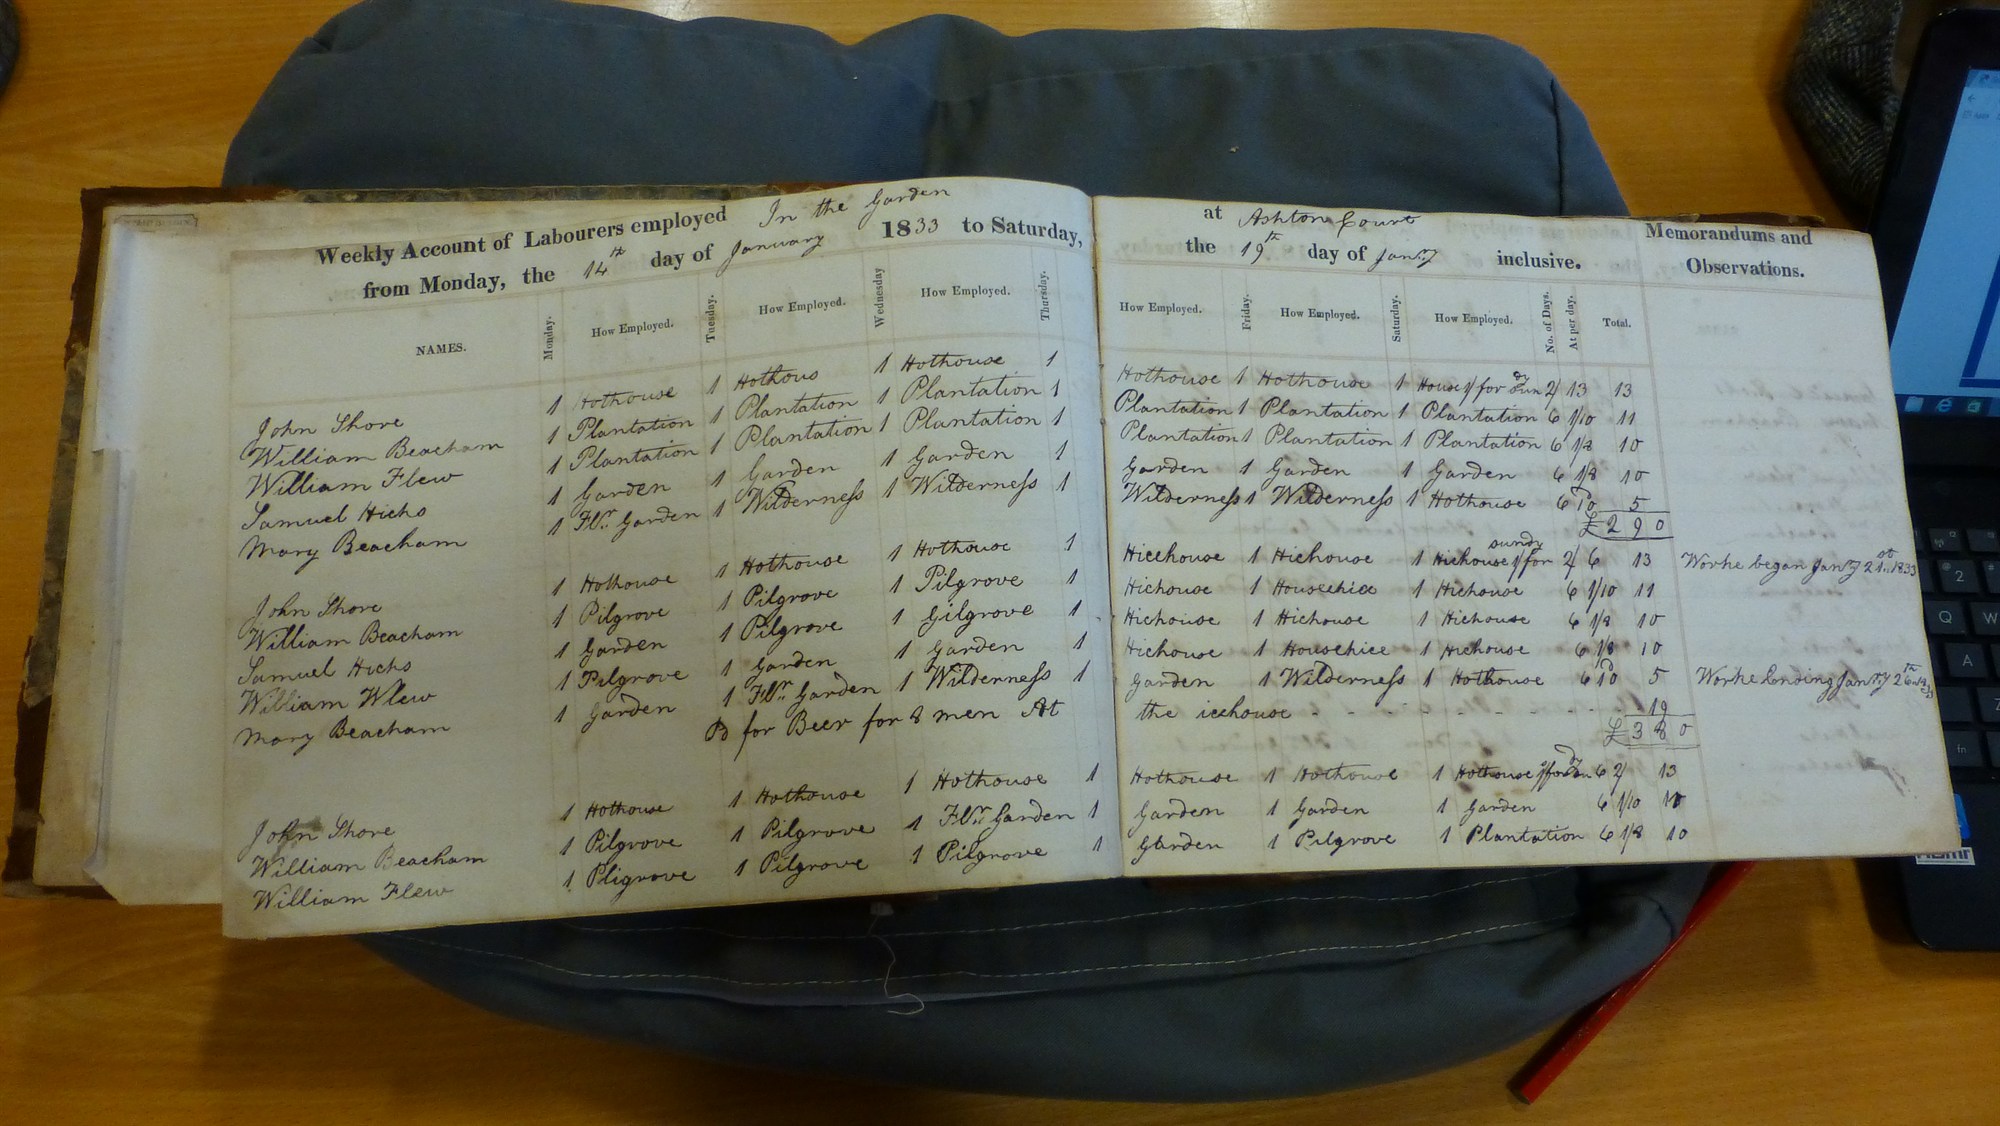 Weekly Account of Labourers employed In the Garden at Ashton Court
from Monday, the 14th day of January 1833 to Saturday, the 19th day of Jany inclusive.
Memorandums and Observations.
NAMES. Monday. How Employed. Tuesday. How Employed. Wednesday How Employed. Thursday. How Employed. Friday. How Employed. Saturday. How Employed. No. of Days. At per day. Total.
John Shore 1 Hothouse 1 Hothous 1 Hothouse 1 Hothouse 1 Hothouse 1 House 1/ for Sundy 2/ 13 13
William Beacham 1 Plantation 1 Plantation 1 Plantation 1 Plantation 1 Plantation 1 Plantation 6 1/10 11
William Flew 1 Plantation 1 Plantation 1 Plantation 1 Plantation 1 Plantation 1 Plantation 6 1/8 10
Samuel Hicks 1 Garden 1 Garden 1 Garden 1 Garden 1 Garden 1 Garden 6 1/8 10
Mary Beacham 1 Flr Garden 1 Wilderness 1 Wilderness 1 Wilderness 1 Wilderness 1 Hothouse 6 10d 5
£ 2 9 0
John Shore 1 Hothouse 1 Hothouse 1 Hothouse 1 Hicehouse 1 Hichouse 1 Hichouse 1/ for sundy 2/ 6 13 Worke began Jany 21st 1833
William Beacham 1 Pilgrove 1 Pilgrove 1 Pilgrove 1 Hichouse 1 Househice 1 Hichouse 6 1/10 11
Samuel Hicks 1 Garden 1 Pilgrove 1 Gilgrove 1 Hichouse 1 Hichouse 1 Hichouse 6 1/8 10
William Wlew 1 Pilgrove 1 Garden 1 Garden 1 Hichouse 1 Househice 1 Hichouse 6 1/8 10
Mary Beacham 1 Garden 1 Flr Garden 1 Wilderness 1 Garden 1 Wilderness 1 Hothouse 6 10d 5 Worke Ending Jany 26th
Pd for Beer for 8 men At the icehouse 19
£ 3 8 0
John Shore 1 Hothouse 1 Hothouse 1 Hothouse 1 Hothouse 1 Hothouse 1 Hothouse 1/ for Sundy 6 2/ 13
William Beacham 1 Pilgrove 1 Pilgrove 1 Flr Garden 1 Garden 1 Garden 1 Garden 6 1/10
William Flew 1 Pligrove 1 Pilgrove 1 Pilgrove 1 Garden 1 Pilgrove 1 Plantation 6 1/8 10